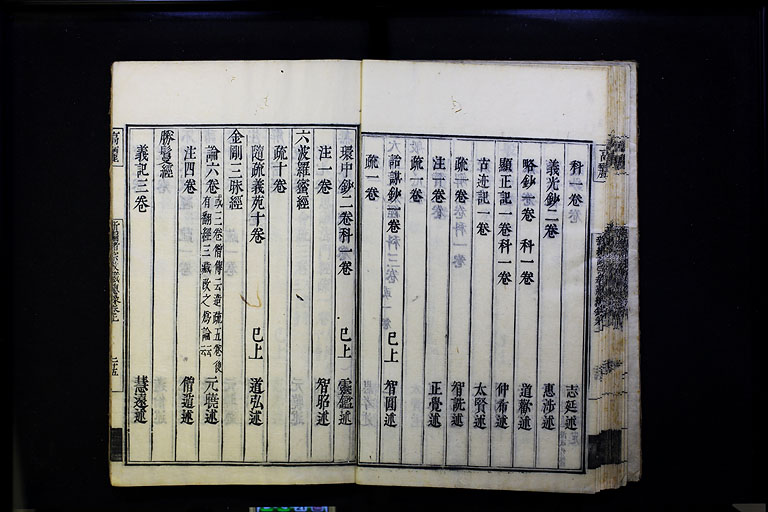 科一卷 志延述
義光鈔二卷 惠涉述
略鈔一卷 科一卷 道歡述
顯正記一卷科一卷 仲希述
古迹記一卷 太賢述
疏一卷科一卷 智詵述
注一卷 正覺述
疏一卷
詒謀鈔一卷 已上 智圓述
疏一卷
環中鈔二卷科一卷 已上 雲鑑述
注一卷 智昭述
六波羅蜜經
疏十卷
隨疏義苑十卷 已上 道弘述
金剛三昧經
論六卷 或三卷僧傳云造疏五卷後有翻經三藏改之爲論云云 元曉述
注四卷 僧遁述
勝鬘經
義記三卷 慧遠述